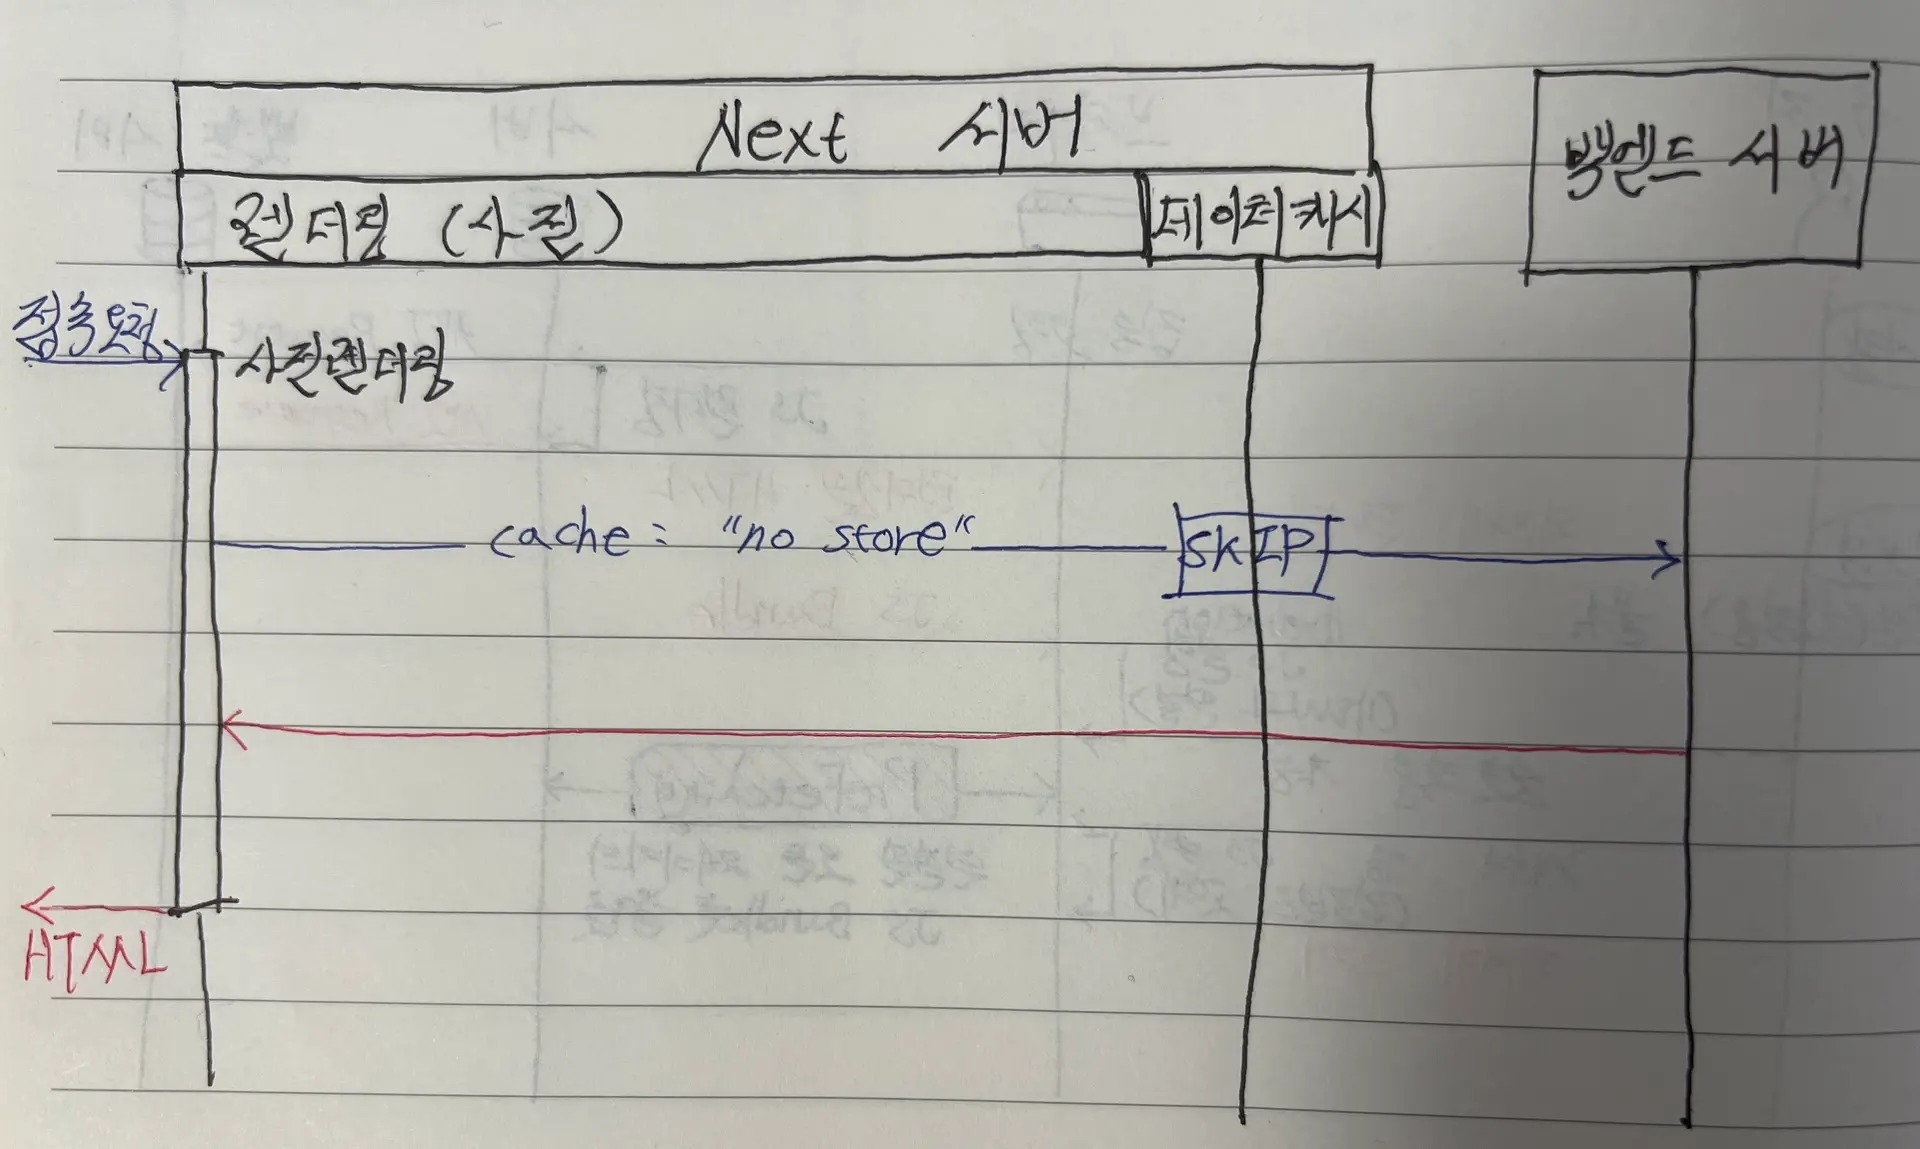 Next 서버
백엔드 서버
렌더링 (사전)
데이터 캐시
접속요청
사전렌더링
cache: "no store"
SKIP
HTML